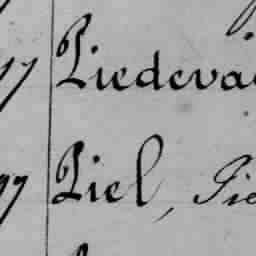 97 Piedeva
97 Piel, Pie